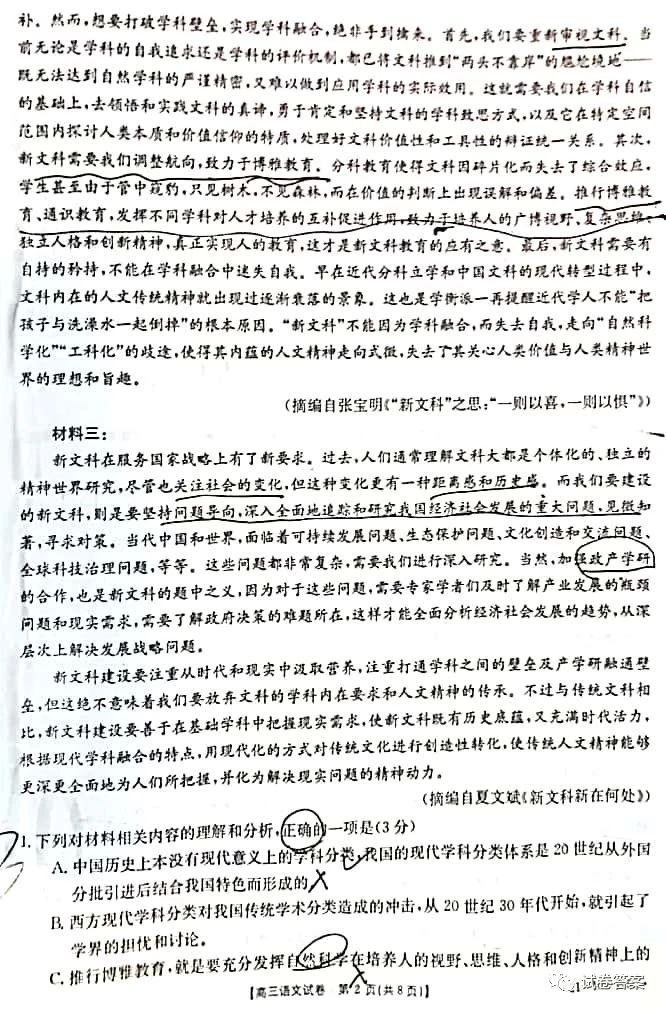 补。然而,想要打破学科壁垒,实现学科融合,绝非手到擒来。首先,我们要重新审视文科。当
前无论是学科的自我追求还是学科的评价机制,都已将文科推到“两头不靠岸”的尴尬境地——
既无法达到自然学科的严谨精密,又难以做到应用学科的实际效用。这就需要我们在学科自信
的基础上,去领悟和实践文科的真谛,勇于肯定和坚持文科的学科致思方式,以及它在特定空间
范围内探讨人类本质和价值信仰的特质,处理好文科价值性和工具性的辩证统一关系。其次,
新文科需要我们调整航向,致力于博雅教育。分科教育使得文科因碎片化而失去了综合效应,
学生甚至由于管中窥豹,只见树木,不见森林,而在价值的判断上出现误解和偏差。推行博雅教
育、通识教育,发挥不同学科对人才培养的互补促进作用,致力于培养人的广博视野、复杂思维、
独立人格和创新精神,真正实现人的教育,这才是新文科教育的应有之意。最后,新文科需要有
自持的矜持,不能在学科融合中迷失自我。早在近代分科立学和中国文科的现代转型过程中,
文科内在的人文传统精神就出现过逐渐衰落的景象。这也是学衡派一再提醒近代学人不能“把
孩子与洗澡水一起倒掉”的根本原因。“新文科”不能因为学科融合,而失去自我,走向“自然科
学化”“工科化”的歧途,使得其内蕴的人文精神走向式微,失去了其关心人类价值与人类精神世
界的理想和旨趣。
(摘编自张宝明《“新文科”之思:“一则以喜,一则以惧”》)
材料三:
新文科在服务国家战略上有了新要求。过去,人们通常理解文科大都是个体化的、独立的
精神世界研究,尽管也关注社会的变化,但这种变化更有一种距离感和历史感。而我们要建设
的新文科,则是要坚持问题导向,深入全面地追踪和研究我国经济社会发展的重大问题,见微知
著,寻求对策。当代中国和世界,面临着可持续发展问题、生态保护问题、文化创造和交流问题、
全球科技治理问题,等等。这些问题都非常复杂,需要我们进行深入研究。当然,加强政产学研
的合作,也是新文科的题中之义,因为对于这些问题,需要专家学者们及时了解产业发展的瓶颈
问题和现实需求,需要了解政府决策的难题所在,这样才能全面分析经济社会发展的趋势,从深
层次上解决发展战略问题。
新文科建设要注重从时代和现实中汲取营养,注重打通学科之间的壁垒及产学研融通壁
垒,但这绝不意味着我们要放弃文科的学科内在要求和人文精神的传承。不过与传统文科相
比,新文科建设要善于在基础学科中把握现实需求,使新文科既有历史底蕴,又充满时代活力,
根据现代学科融合的特点,用现代化的方式对传统文化进行创造性转化,使传统人文精神能够
更深更全面地为人们所把握,并化为解决现实问题的精神动力。
(摘编自夏文斌《新文科新在何处》)
1. 下列对材料相关内容的理解和分析,正确的一项是(3 分)
A. 中国历史上本没有现代意义上的学科分类,我国的现代学科分类体系是 20 世纪从外国
分批引进后结合我国特色而形成的。
B. 西方现代学科分类对我国传统学术分类造成的冲击,从 20 世纪 30 年代开始,就引起了
学界的担忧和讨论。
C. 推行博雅教育,就是要充分发挥自然科学在培养人的视野、思维、人格和创新精神上的
【高三语文试卷 第 2 页(共 8 页)】
试卷答案